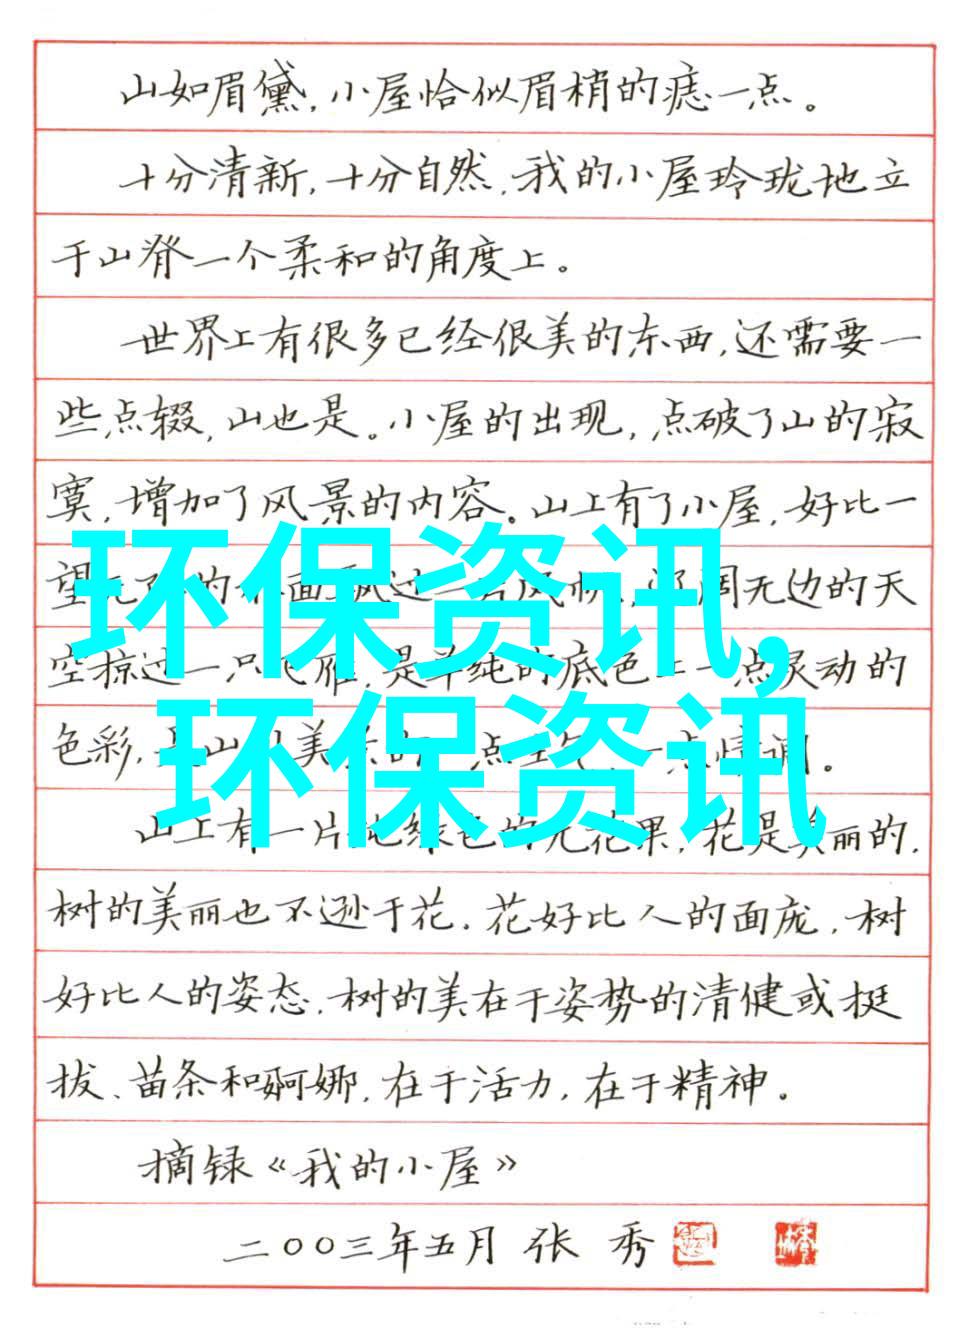 山如眉黛，小屋恰似眉梢的痣一点。
十分清新，十分自然，我的小屋玲珑地立
于山脊一个柔和的角度上。
世界上有很多已经很美的东西，还需要一
些点缀，山也是。小屋的出现，点破了山的寂
寞，增加了风景的内容。山上有了小屋，好比一
环保资讯，
望 面飘过一 风帆， 周无边的天
空掠过一只 雁，是单纯的底色上一点灵动的
环保资讯
色彩， 山 美 点 一点情调。
山上有一片 绿色的无花果，花是美丽的，
树的美丽也不逊于花。花好比人的面庞，树
好比人的姿态。树的美在于姿势的清健或挺
拔、苗条和婀娜，在于活力，在于精神。
摘录《我的小屋》
二〇〇三年五月 张 秀